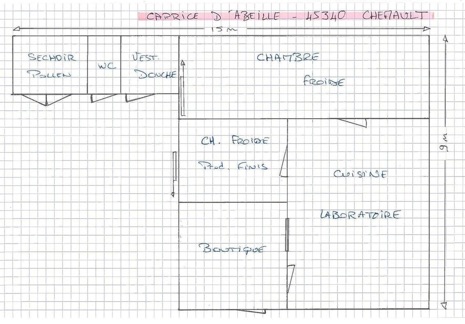 CAPRICE D'ABEILLE - 45340 CHEMAULT
15 m
SECHOIR
POLLEN
WC
VEST.
DOUCHE
CHAMBRE
FROIDE
9 m
CH. FROIDE
Prod. FINIS
CUISINE
LABORATOIRE
BOUTIQUE